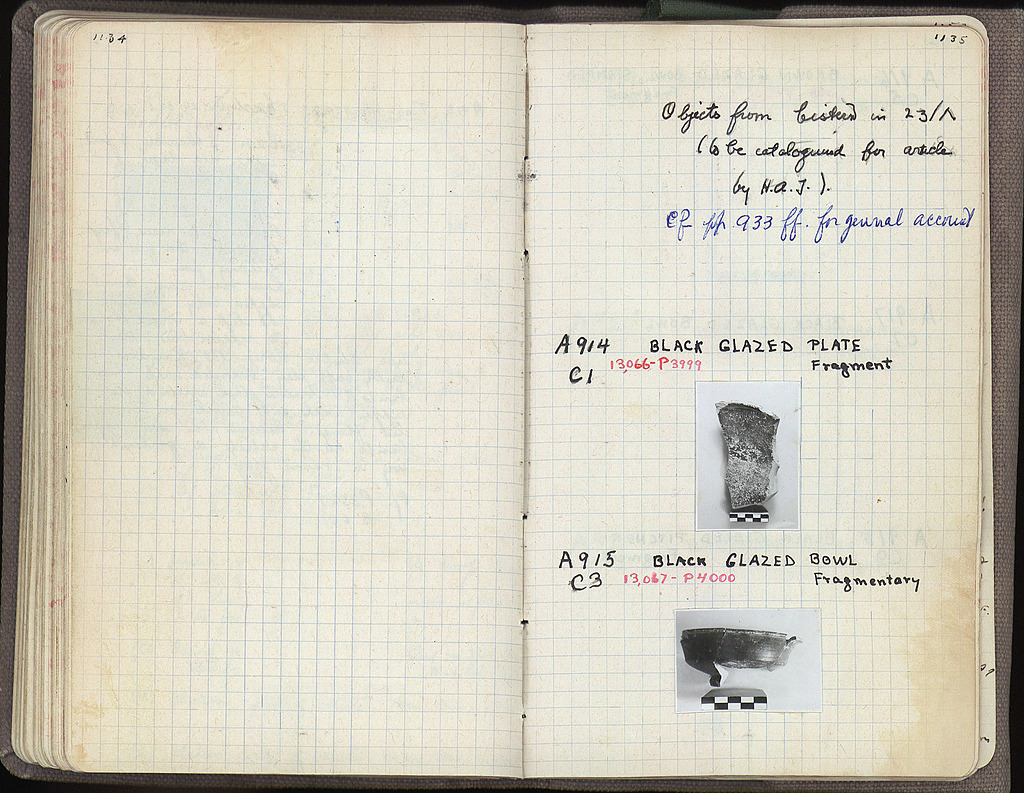 1134
1135
Objects from Cistern in 23/Λ
(to be catalogued for article
by H.A.T.).
Cf pp. 933 ff. for general account
A 914 BLACK GLAZED PLATE
C1 13,066-P3999 Fragment
A 915 BLACK GLAZED BOWL
C3 13,067-P4000 Fragmentary